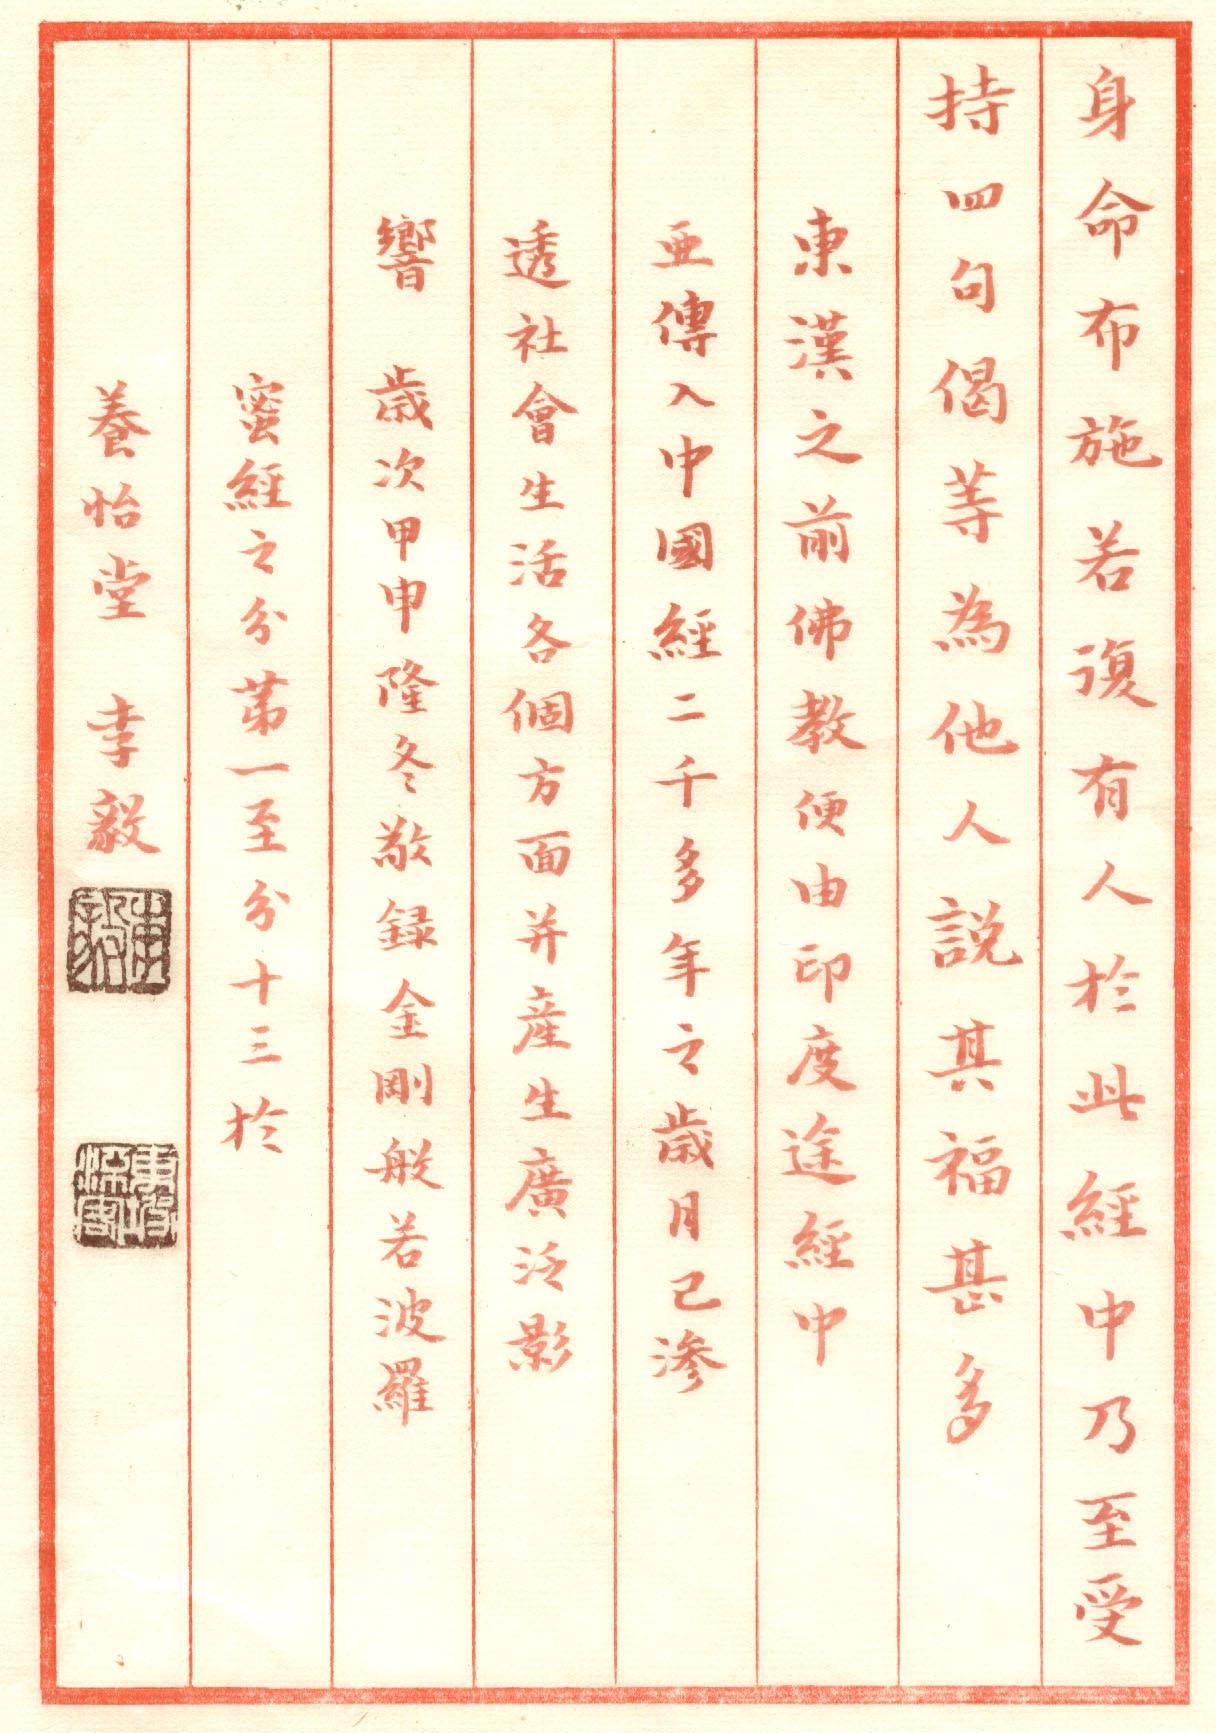 身命布施若復有人於此經中乃至受
持四句偈等為他人說其福甚多
東漢之前佛教便由印度途經中
亜傳入中國經二千多年之歲月已滲
透社會生活各個方面并産生廣泛影
響 歲次甲申隆冬敬録金剛般若波羅
蜜經之分第一至分十三於
養怡堂 李毅